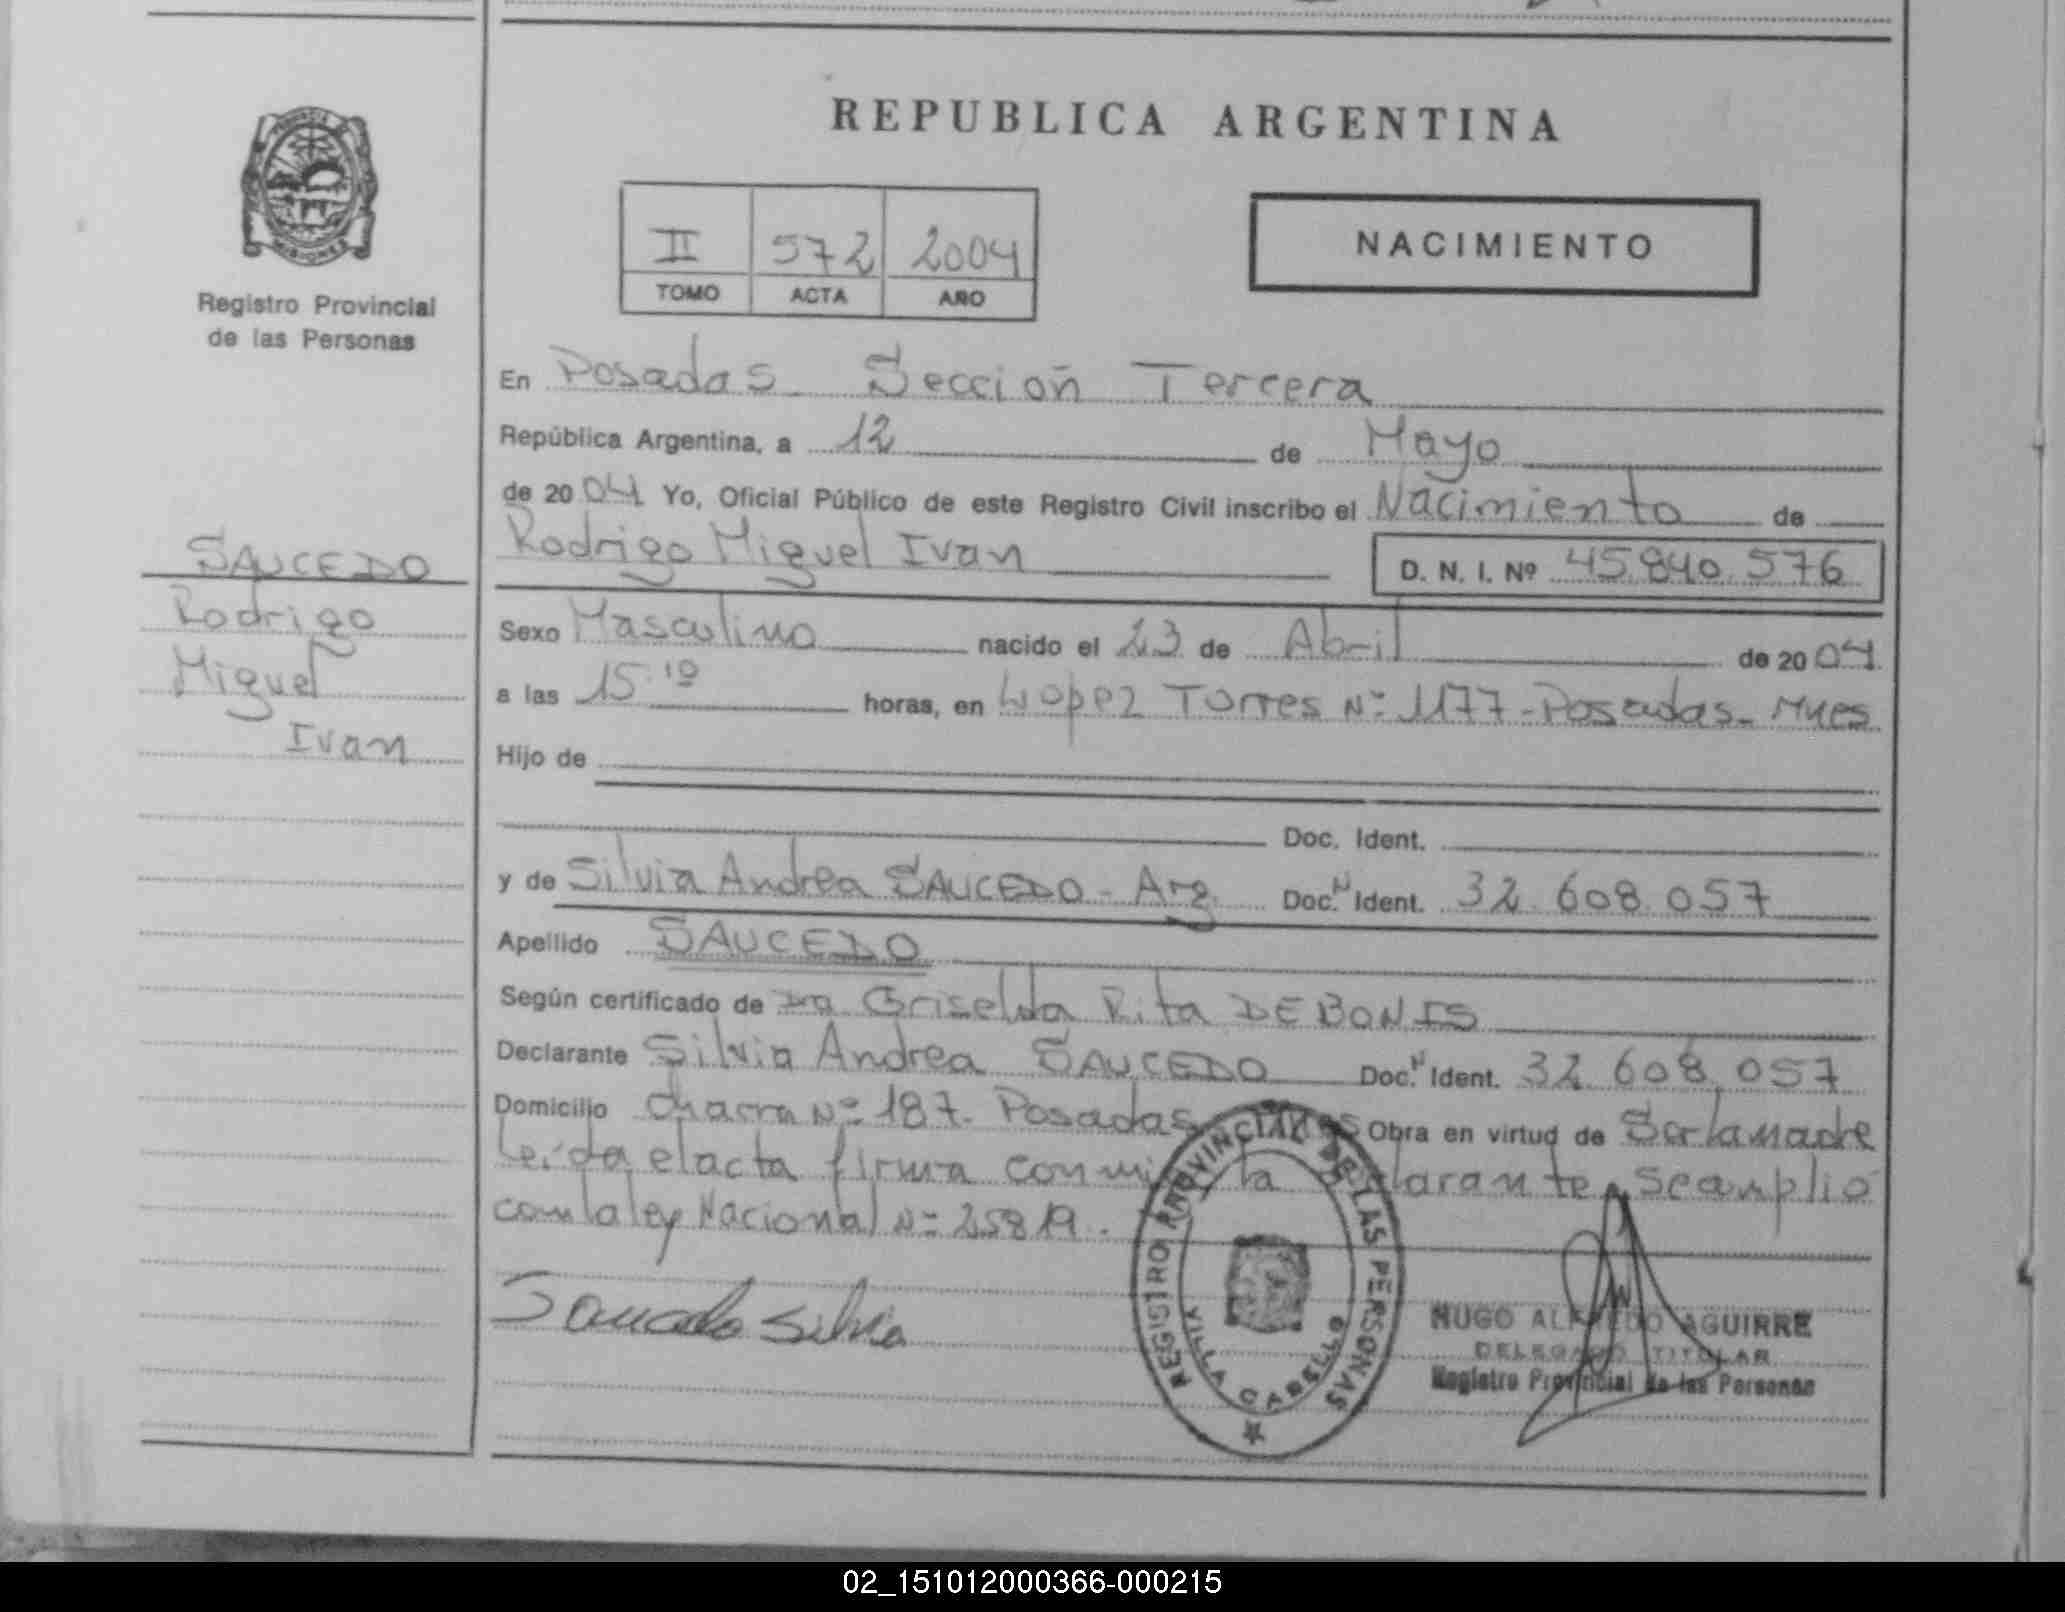 REPUBLICA ARGENTINA
PROVINCIA DE
MISIONES
Registro Provincial
de las Personas
II 572 2004
TOMO ACTA AÑO
NACIMIENTO
En Posadas Sección Tercera
República Argentina, a 12 de Mayo
de 2004 Yo, Oficial Público de este Registro Civil inscribo el Nacimiento de
Rodrigo Miguel Ivan D. N. I. Nº 45.840.576
SAUCEDO
Rodrigo
Miguel
Ivan
Sexo Masculino nacido el 23 de Abril de 2004
a las 15.10 horas, en Lopez Torres Nº 1177-Posadas-Mnes
Hijo de
Doc. Ident.
y de Silvia Andrea SAUCEDO-Arg. Doc. N Ident. 32.608.057
Apellido SAUCEDO
Según certificado de Dra Griselda Rita DEBONIS
Declarante Silvia Andrea SAUCEDO Doc. N Ident. 32.608.057
Domicilio chacra Nº 187. Posadas Mnes Obra en virtud de Ser la madre
leída el acta firma conmigo la declarante. Se amplio
con la ley Nacional Nº 25819.
Saucedo Silvia
REGISTRO PROVINCIAL DE LAS PERSONAS
VILLA CABELLO
HUGO ALFREDO AGUIRRE
DELEGADO TITULAR
Registro Provincial de las Personas
02_151012000366-000215